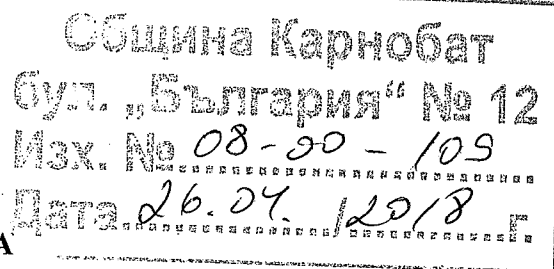 Община Карнобат
бул. „България“ № 12
Изх. № 08-00-109
Дата 26.04. /2018 г.
А